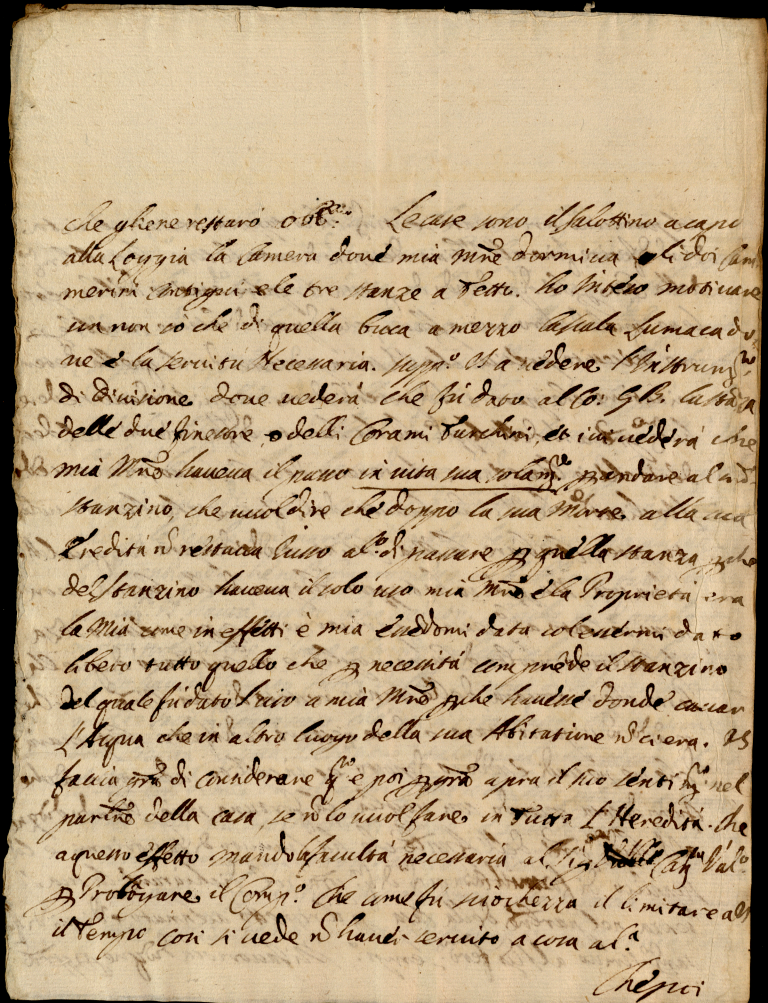 che gliene restarò obb.mo Le case sono il salottino a capo
alla Loggia la Camera dove mia Mre dormiva li doi Cam
merini contigui e le tre stanze a Tetti. ho inteso motivare
un non so che di quella buca a mezzo la scala Lumaca do
ve è la servitù Necessaria. supp.o VS a vedere l'Instrum.to
di divisione dove vederà che fu dato al Co: GB. la stanza
delle due finestre o delli Corami Turchini, et ivi vederà che
mia Mre haveva il passo in vita sua solam.te p andare al d.o
stanzino, che vuol dire che doppo la sua Morte alla sua
Eredità nõ restava Ius al.o di passare p quella stanza pche
del stanzino haveva il solo uso mia Mre e la Proprietà era
la Mia come in effetti è mia essendomi data col
libero tutto quello che p necessità comprende il stanzino
del quale fu dato l'uso a mia Mre pche havesse donde cavar
l'Aqua che in altro luogo della sua Abitatione nõ ci era. VS
faccia gra di considerare q.to e poi p gra apra il suo sentim.to nel
part.re della casa, se nõ lo vuol fare in Tutta l'Heredità. che
a questo effetto mando la facultà necessaria al Sig. Val.o
p Prorogare il Comp.o che come fu sciochezza il limitare a VS
il Tempo, così si vede nõ haver servito a cosa al.a
Che poi